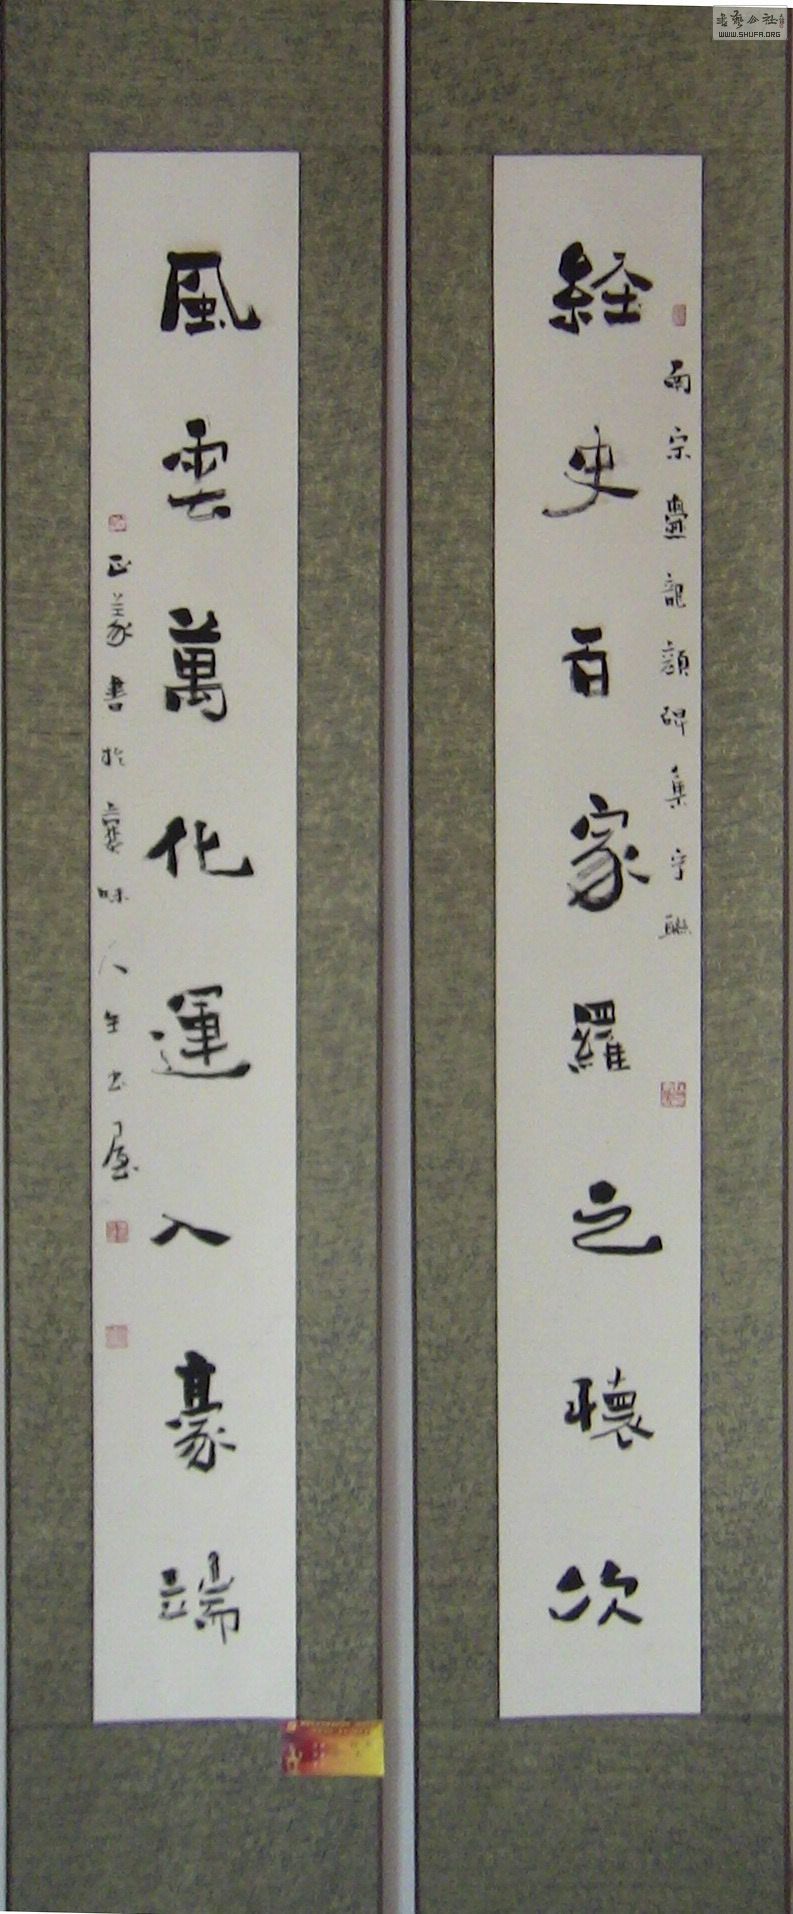 書藝公社
WWW.SHUFA.ORG
南宗爨龍顏碑集字聯
経史百家羅之懷次
風雲萬化運入豪端
正篆書於
人生書屋